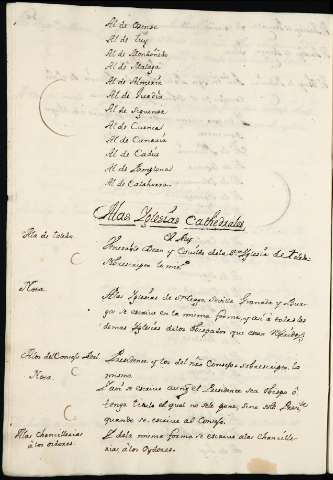 Al de Osma
Al de Tuy
Al de Mondoñedo
Al de Malaga
Al de Almeria
Al de Guadix
Al de Siguenza
Al de Cuenca
Al de Canaria
Al de Cadiz
Al de Pamplona
Al de Calahorra
Alas Yglesias Cathedrales
Ala de Toledo.
El Muy
Venerable Dean y Cavildo dela Sta Yglesia de Toledo
Sobrescripto la mesma
Nota.
Alas Yglesias de Santiago, Sevilla Granada y Bur
gos se escrive en la misma forma, y asi à todas las
demas Yglesias delos Obispados que estan
Alos del Consejo Real
Presidente y los del não Consejo Sobrescripto lo
mismo
Nota.
Y asi se escrive aunq el Presidente sea Obispo ô
tenga titulo el qual no se le pone, sino solo Presidte
quando se escrive al Consejo.
Alas Chancillerias
à los ordenes.
Y dela misma forma se escrive alas Chancille
rias, à los Ordenes.